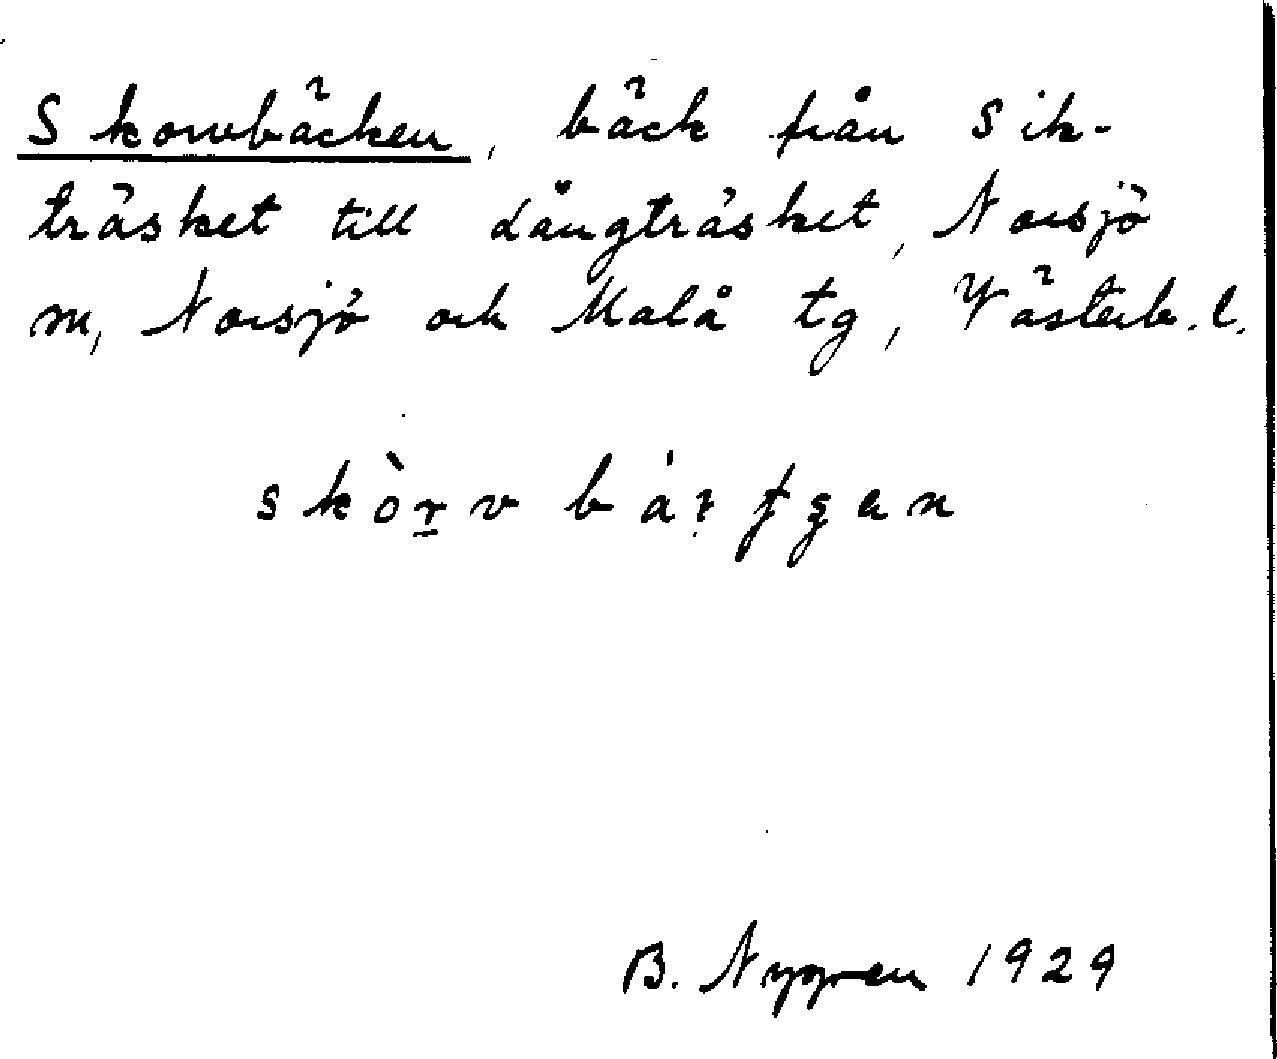 Skorvbäcken, bäck från Sik-
träsket till Långträsket, Norsjö
m, Norsjö och Malå tg, Västerb. l.
B. Nygren 1929